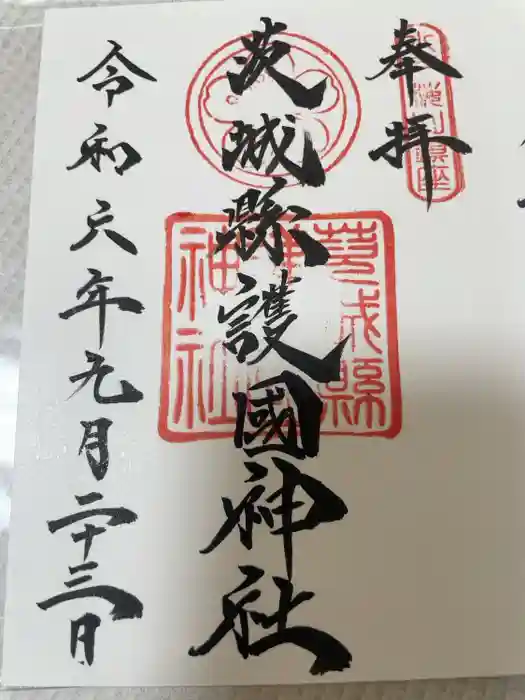 奉拝
茨城縣護國神社
令和六年九月二十三日
茨城縣
護國
神社